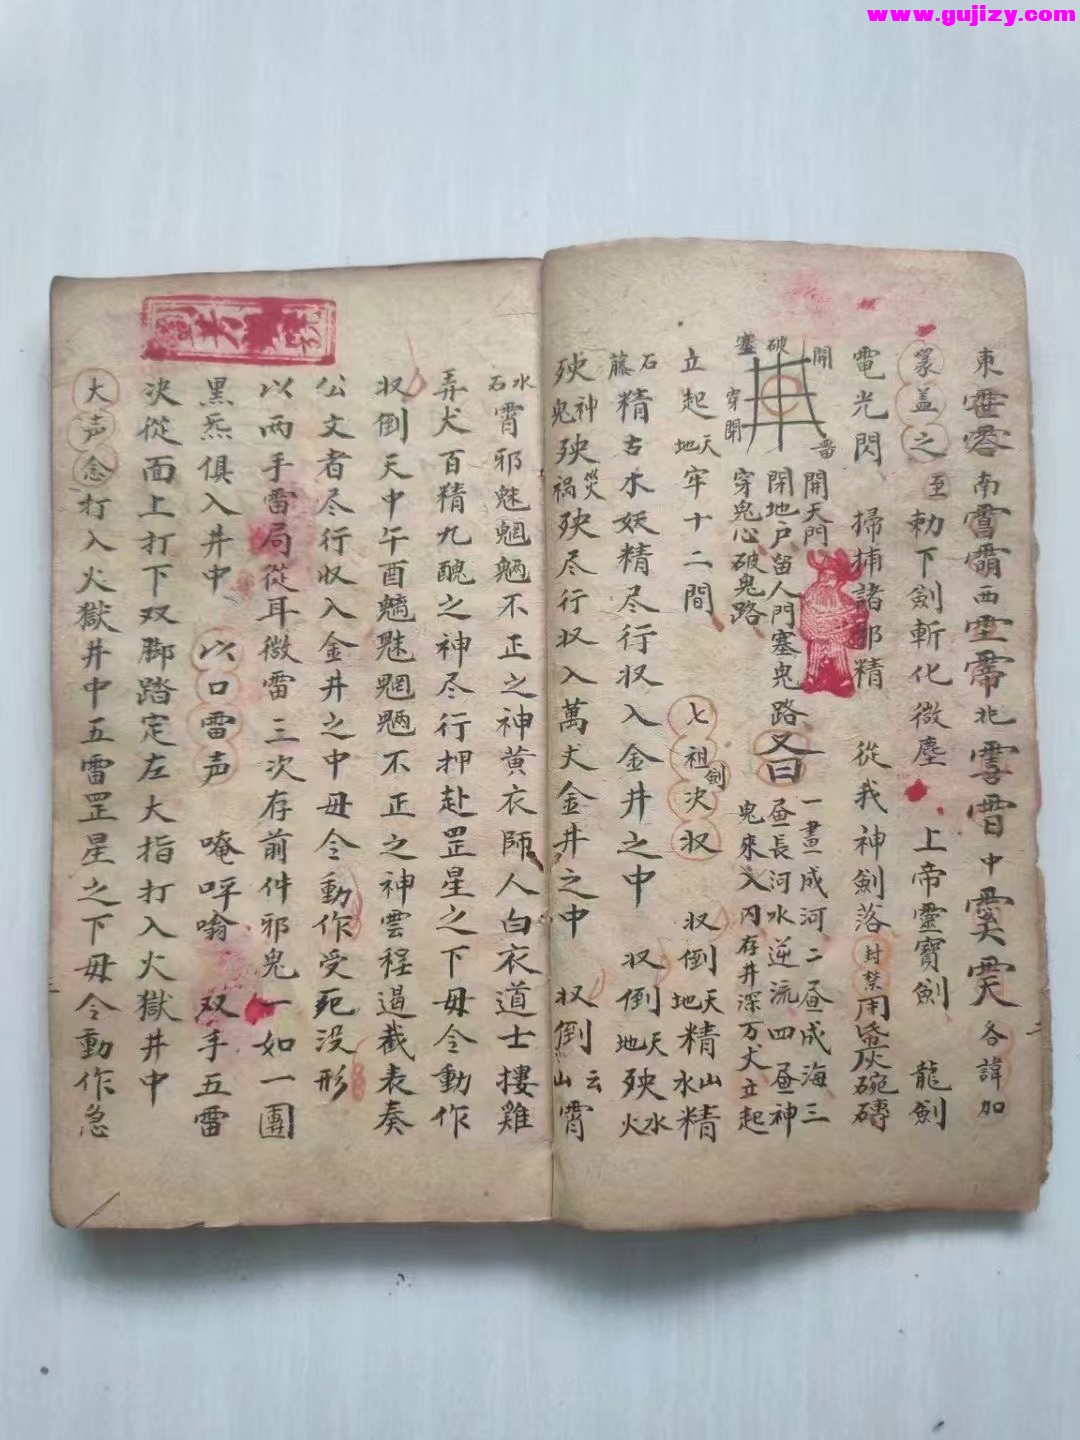 www.gujizy.com
東 南 西 北 中 各諱加
蓋之至勅下劍斬化微塵 上帝靈寶劍 龍劍
電光閃 掃捕諸邪精 從我神劍落封禁用盛灰碗磚
塞 破 開
穿開
開天門
閉地户留人門塞鬼路又曰
穿鬼心破鬼路
一畫成河二昼成海三
昼長河水逆流四昼神
鬼來入内存井深万丈立起
立起天地牢十二間 七祖劍决収 収倒天地精山水精
石藤精古木妖精尽行収入金井之中 収倒天地殃水火
殃神鬼殃災祸殃尽行収入萬丈金井之中 収倒云山霄
水石霄邪魅魍魎不正之神黄衣師人白衣道士摟雞
弄犬百精九醜之神尽行押赴罡星之下毋令動作
収倒天中午酉魑魅魍魎不正之神雲程遏截表奏
公文者尽行収入金井之中毋令動作受死没形
以兩手雷局從耳微雷三次存前件邪鬼一如一團
黑炁俱入井中 以口雷声 唵吽噏 双手五雷
决從面上打下双脚踏定左大指打入火獄井中
大声念打入火獄井中五雷罡星之下毋令動作急